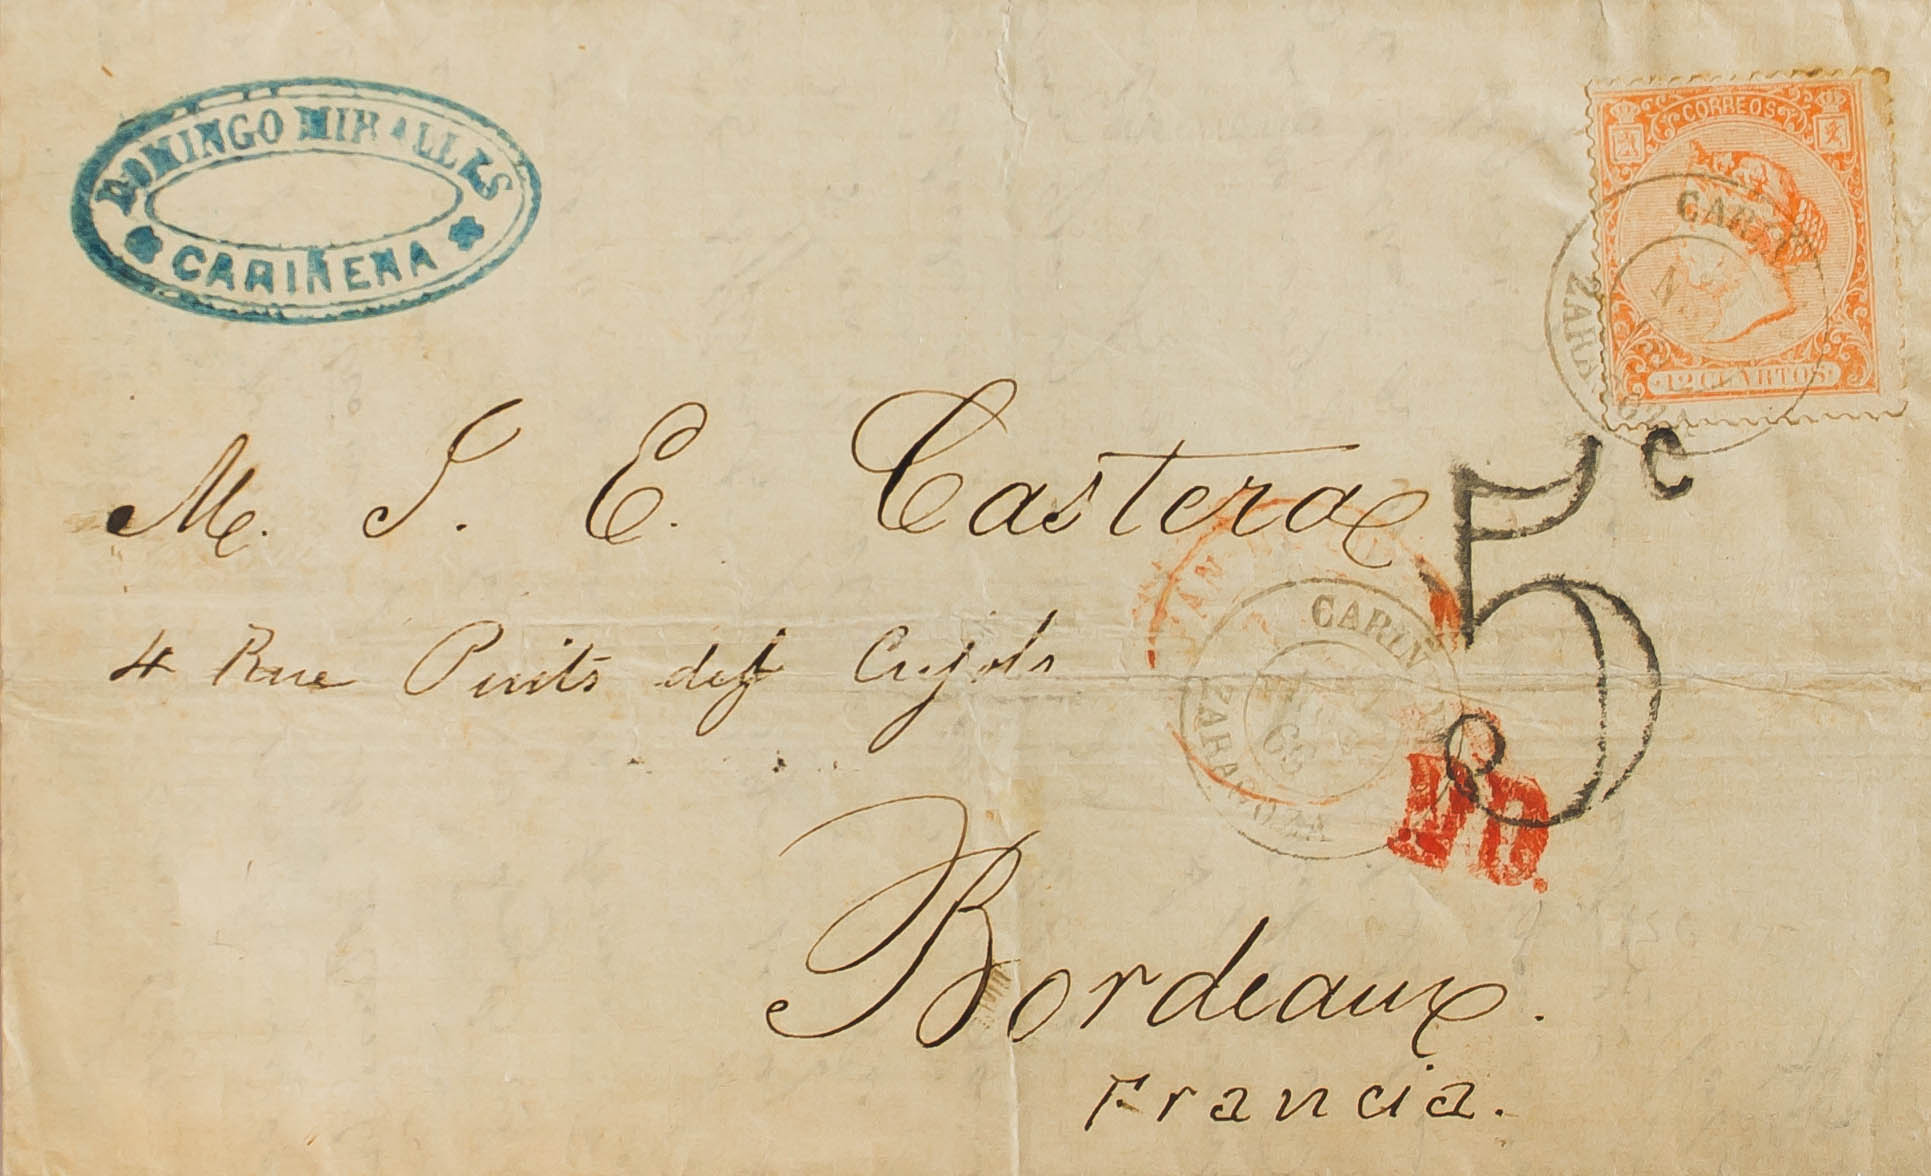 DOMINGO MIRALLES
CARIÑENA
CORREOS
12 CUARTOS
CARIÑ
ZARAGOZA
5 C
M. J. E. Castera
4 Rue Puits
CARIÑ
ZARAGOZA
P.D.
Bordeaux.
Francia.